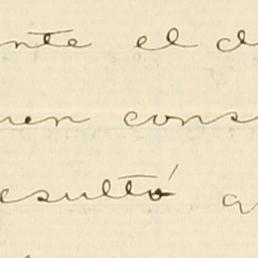 nte el d
uen cons
esultó q